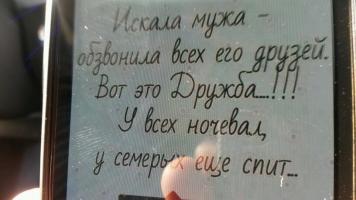 Искала мужа -
обзвонила всех его друзей.
Вот это Дружба...!!!
У всех ночевал,
у семерых еще спит...